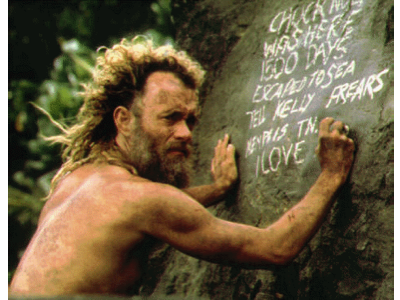 CHUCK NO
WAS HERE
1500 DAYS
ESCAPED TO SEA
TELL KELLY FREARS
MEMPHIS TN.
I LOVE